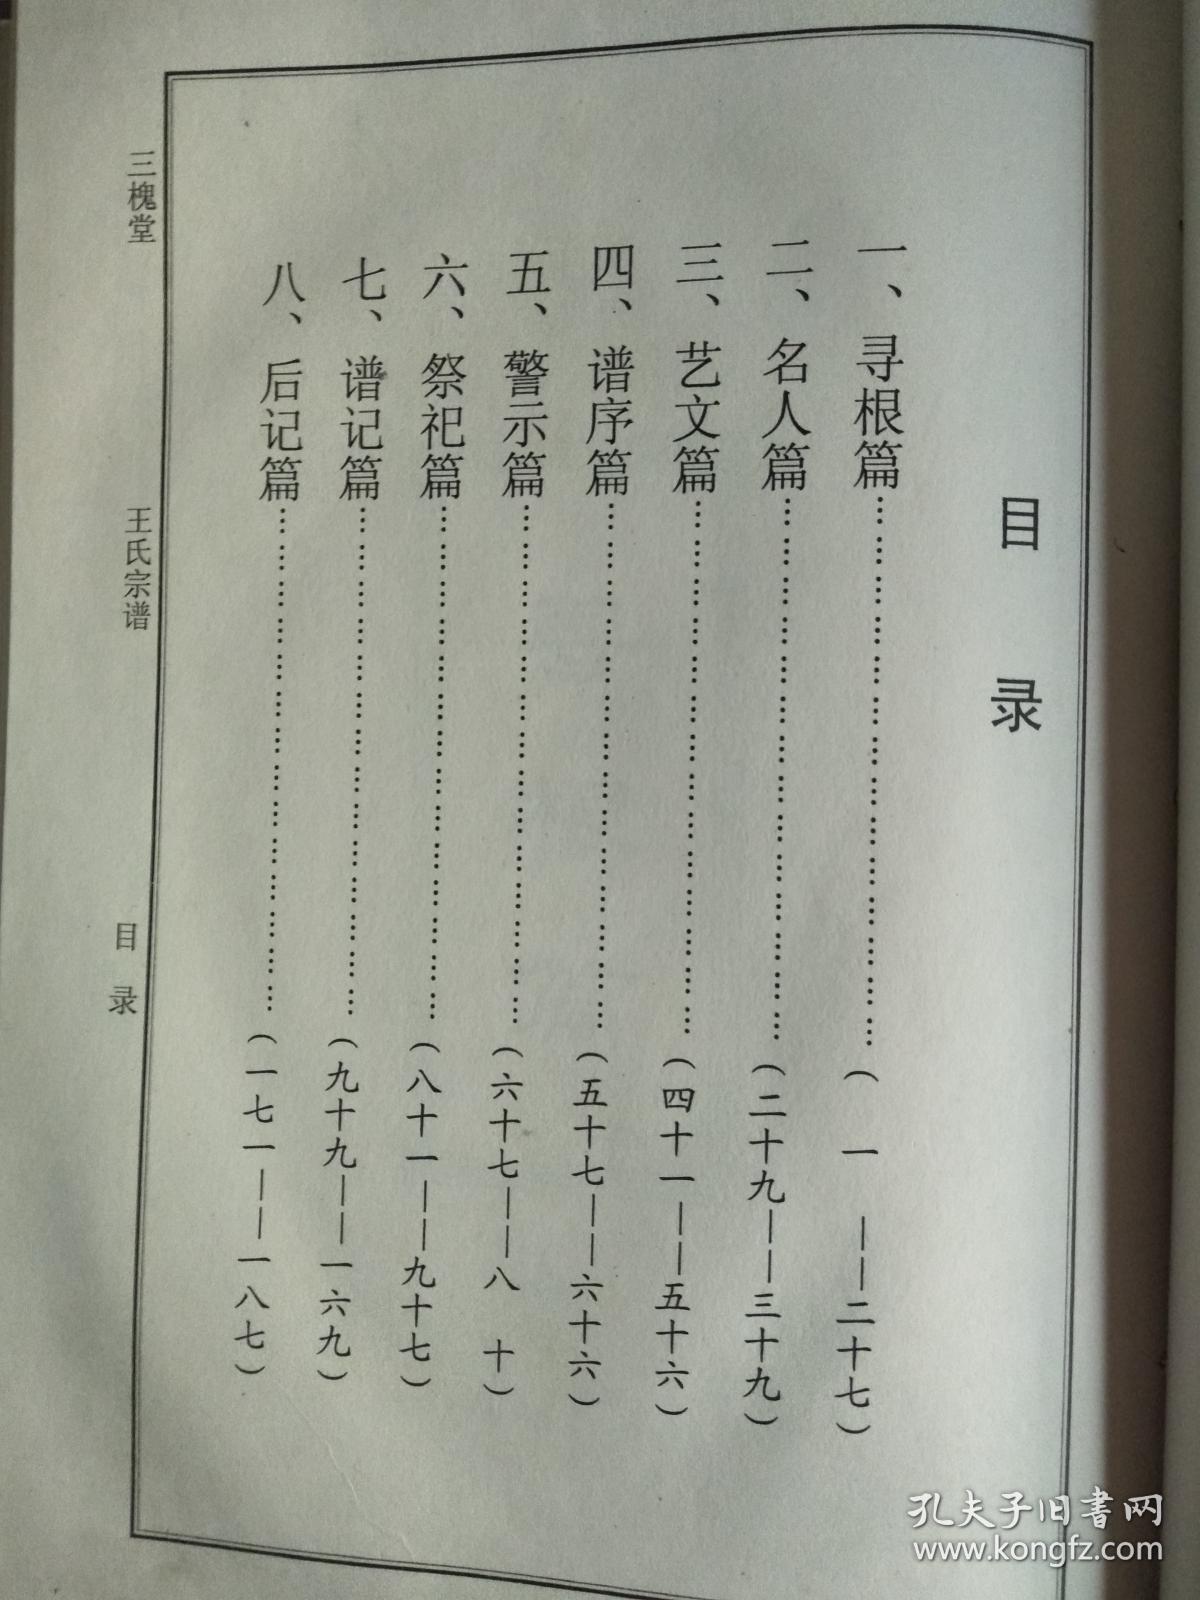 目录
一、寻根篇……………………………………………………（ 一 ——二十七）
二、名人篇……………………………………………………（二十九——三十九）
三、艺文篇……………………………………………………（四十一——五十六）
四、谱序篇……………………………………………………（五十七——六十六）
五、警示篇……………………………………………………（六十七——八 十）
六、祭祀篇……………………………………………………（八十一——九十七）
七、谱记篇……………………………………………………（九十九——一六九）
八、后记篇……………………………………………………（一七一——一八七）
三槐堂 王氏宗谱 目录
孔夫子旧書网
www.kongfz.com